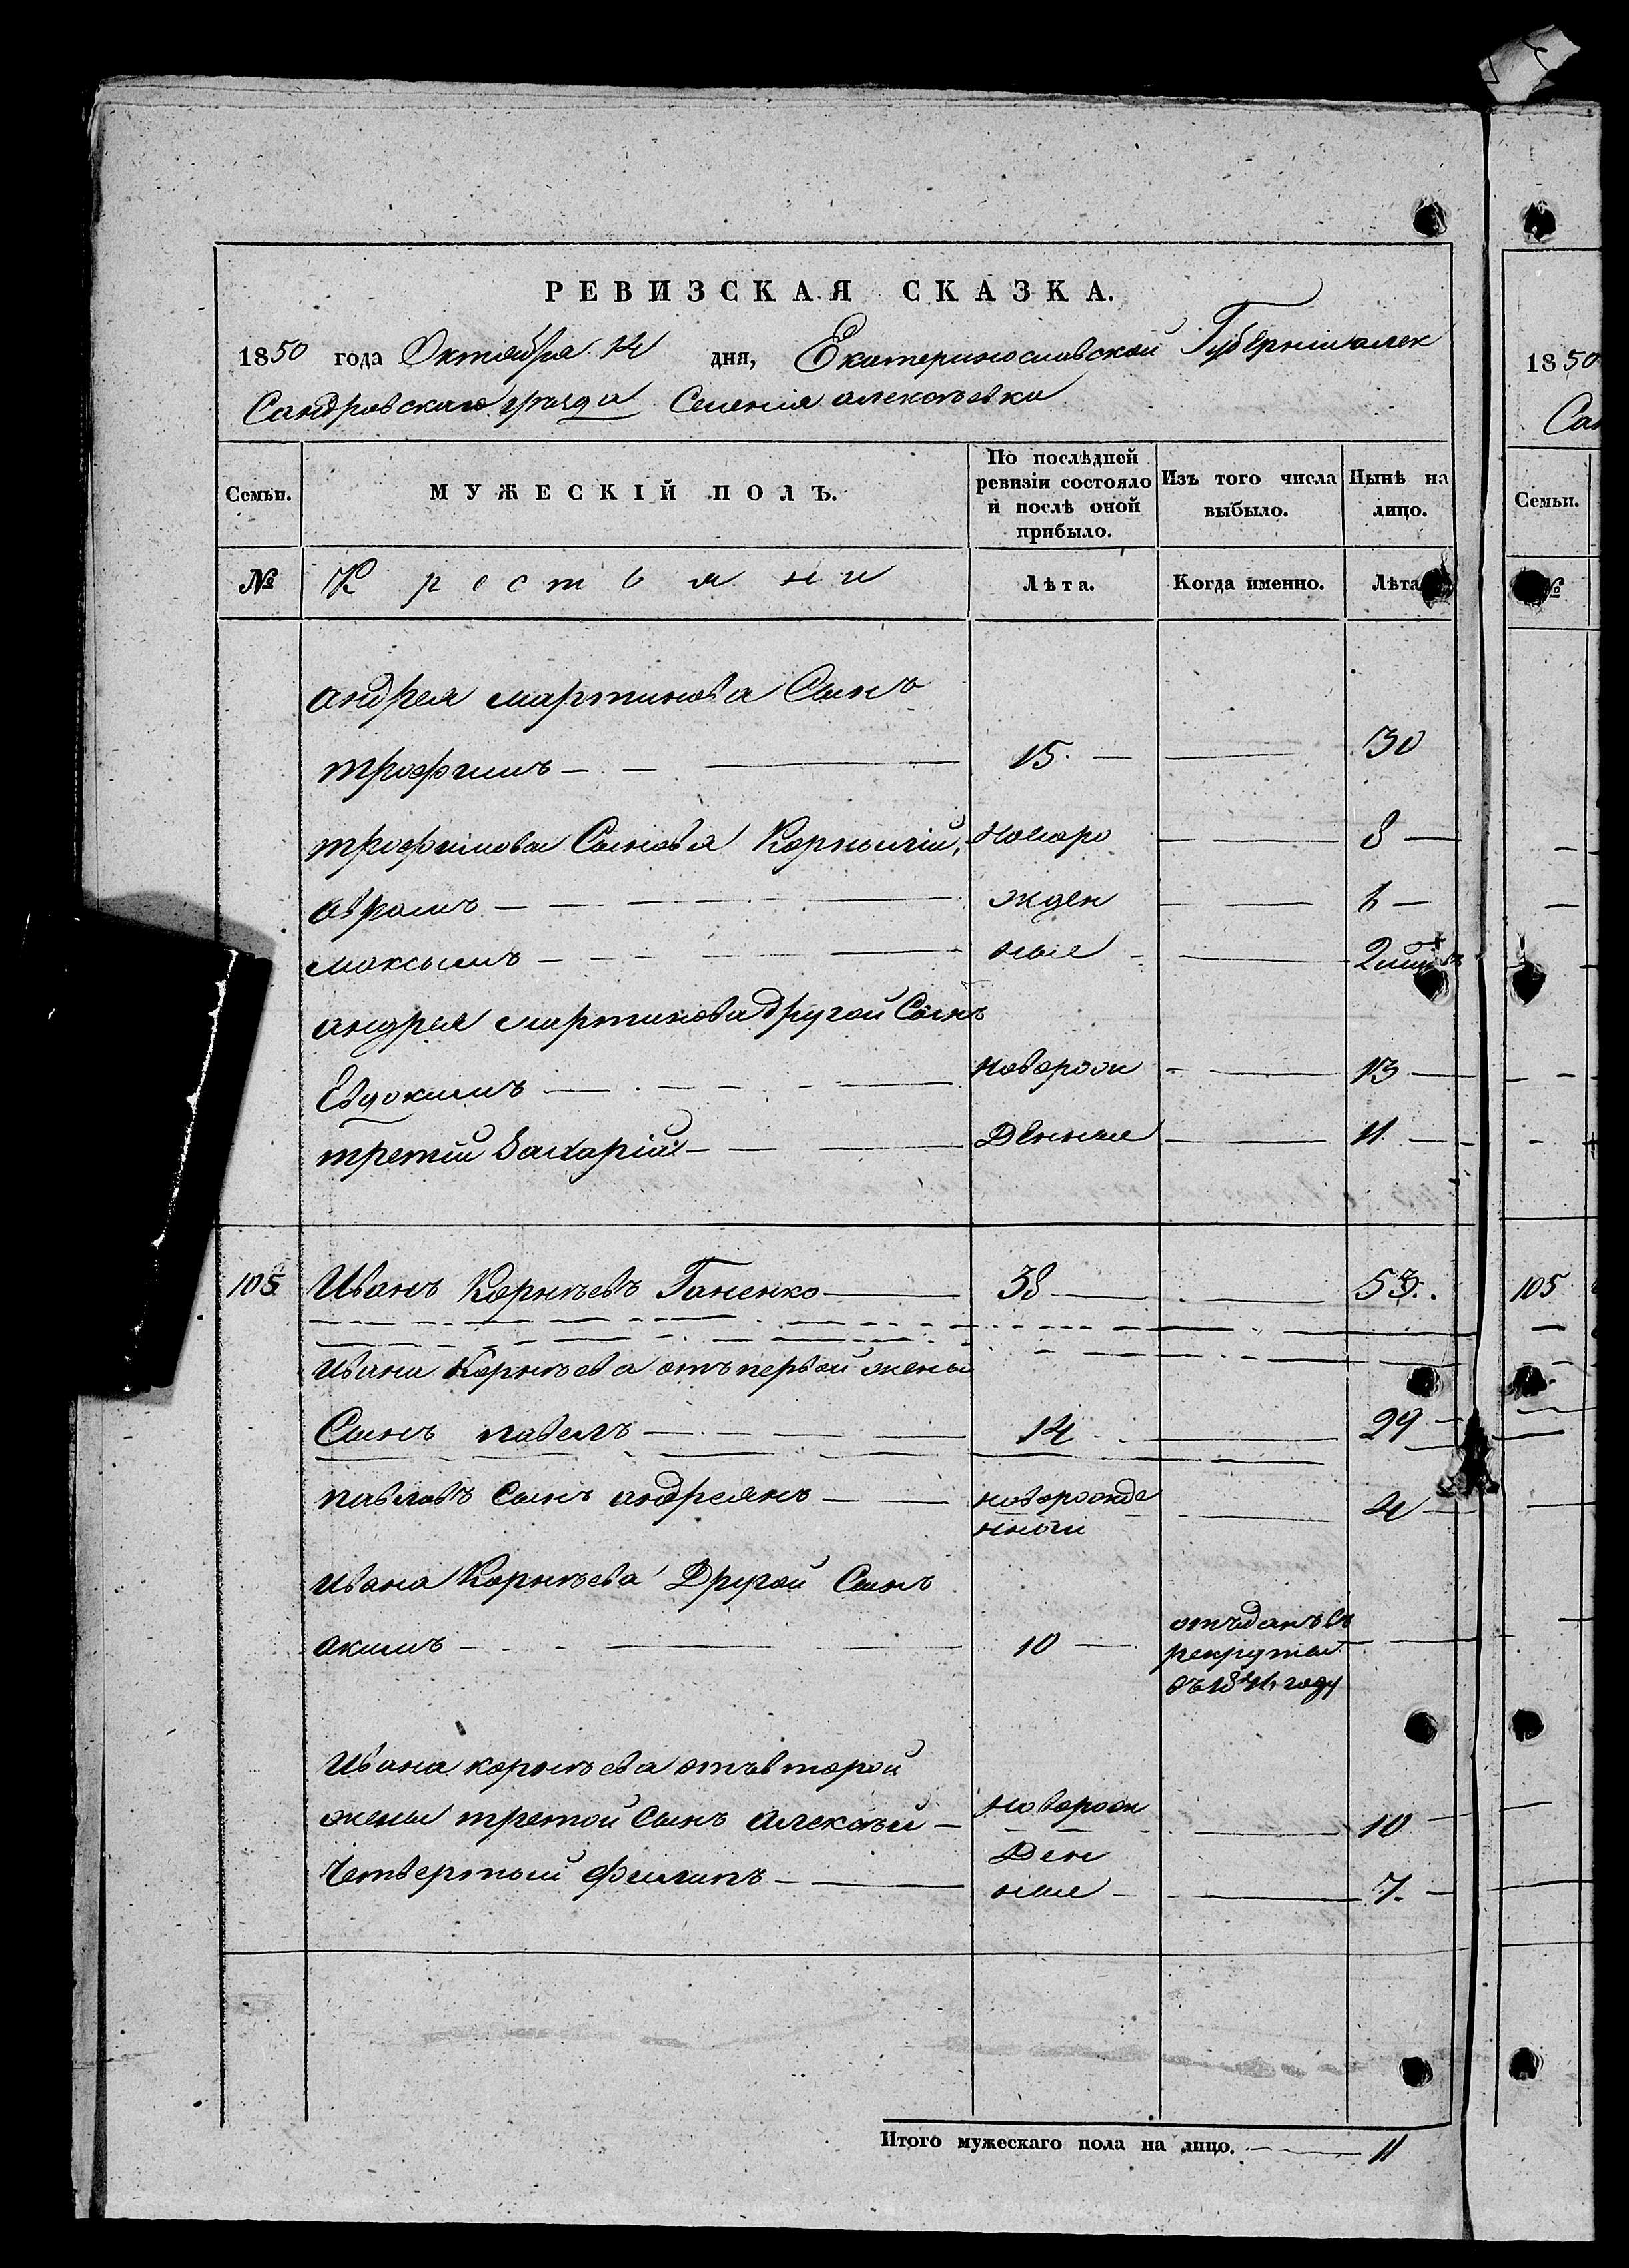 РЕВИЗСКАЯ СКАЗКА.
1850 года Октября 14 дня, Екатеринославской Губернии алек
Сандровскаго уезда Селения алексъевки
Семьи.
МУЖЕСКІЙ ПОЛЪ.
По послѣдней ревизіи состояло и послѣ оной прибыло.
Изъ того числа выбыло.
Нынѣ на лицо.
№ Крестьяни Лѣта. Когда именно. Лѣта
андрея мартинова Сынъ
трофимъ 15. 30
трофимовы Сыновя Корнылій, новоро 8
аврамъ жден 6
максымъ ные 2
андрея мартинова другой Сынъ
Евдокимъ новорож 13
третій Захарій Денные 11
105 Иванъ Корнъевъ Ганенко 38 53.
Ивана Корнъева отъ первой жены
Сынъ павелъ 14 29
павловъ Сынъ андреянъ новорожде 4
нный
Ивана Корнъева Другой Сынъ
акимъ 10 отъданъ въ
рекруты
въ 1846 году
Ивана корнъева отъ второй
жены третой Сынъ алексъй новорож 10
Ден
Четвертый филипъ ные 7.
Итого мужескаго пола на лицо. 11
1850
Сан
Семьи.
№
105